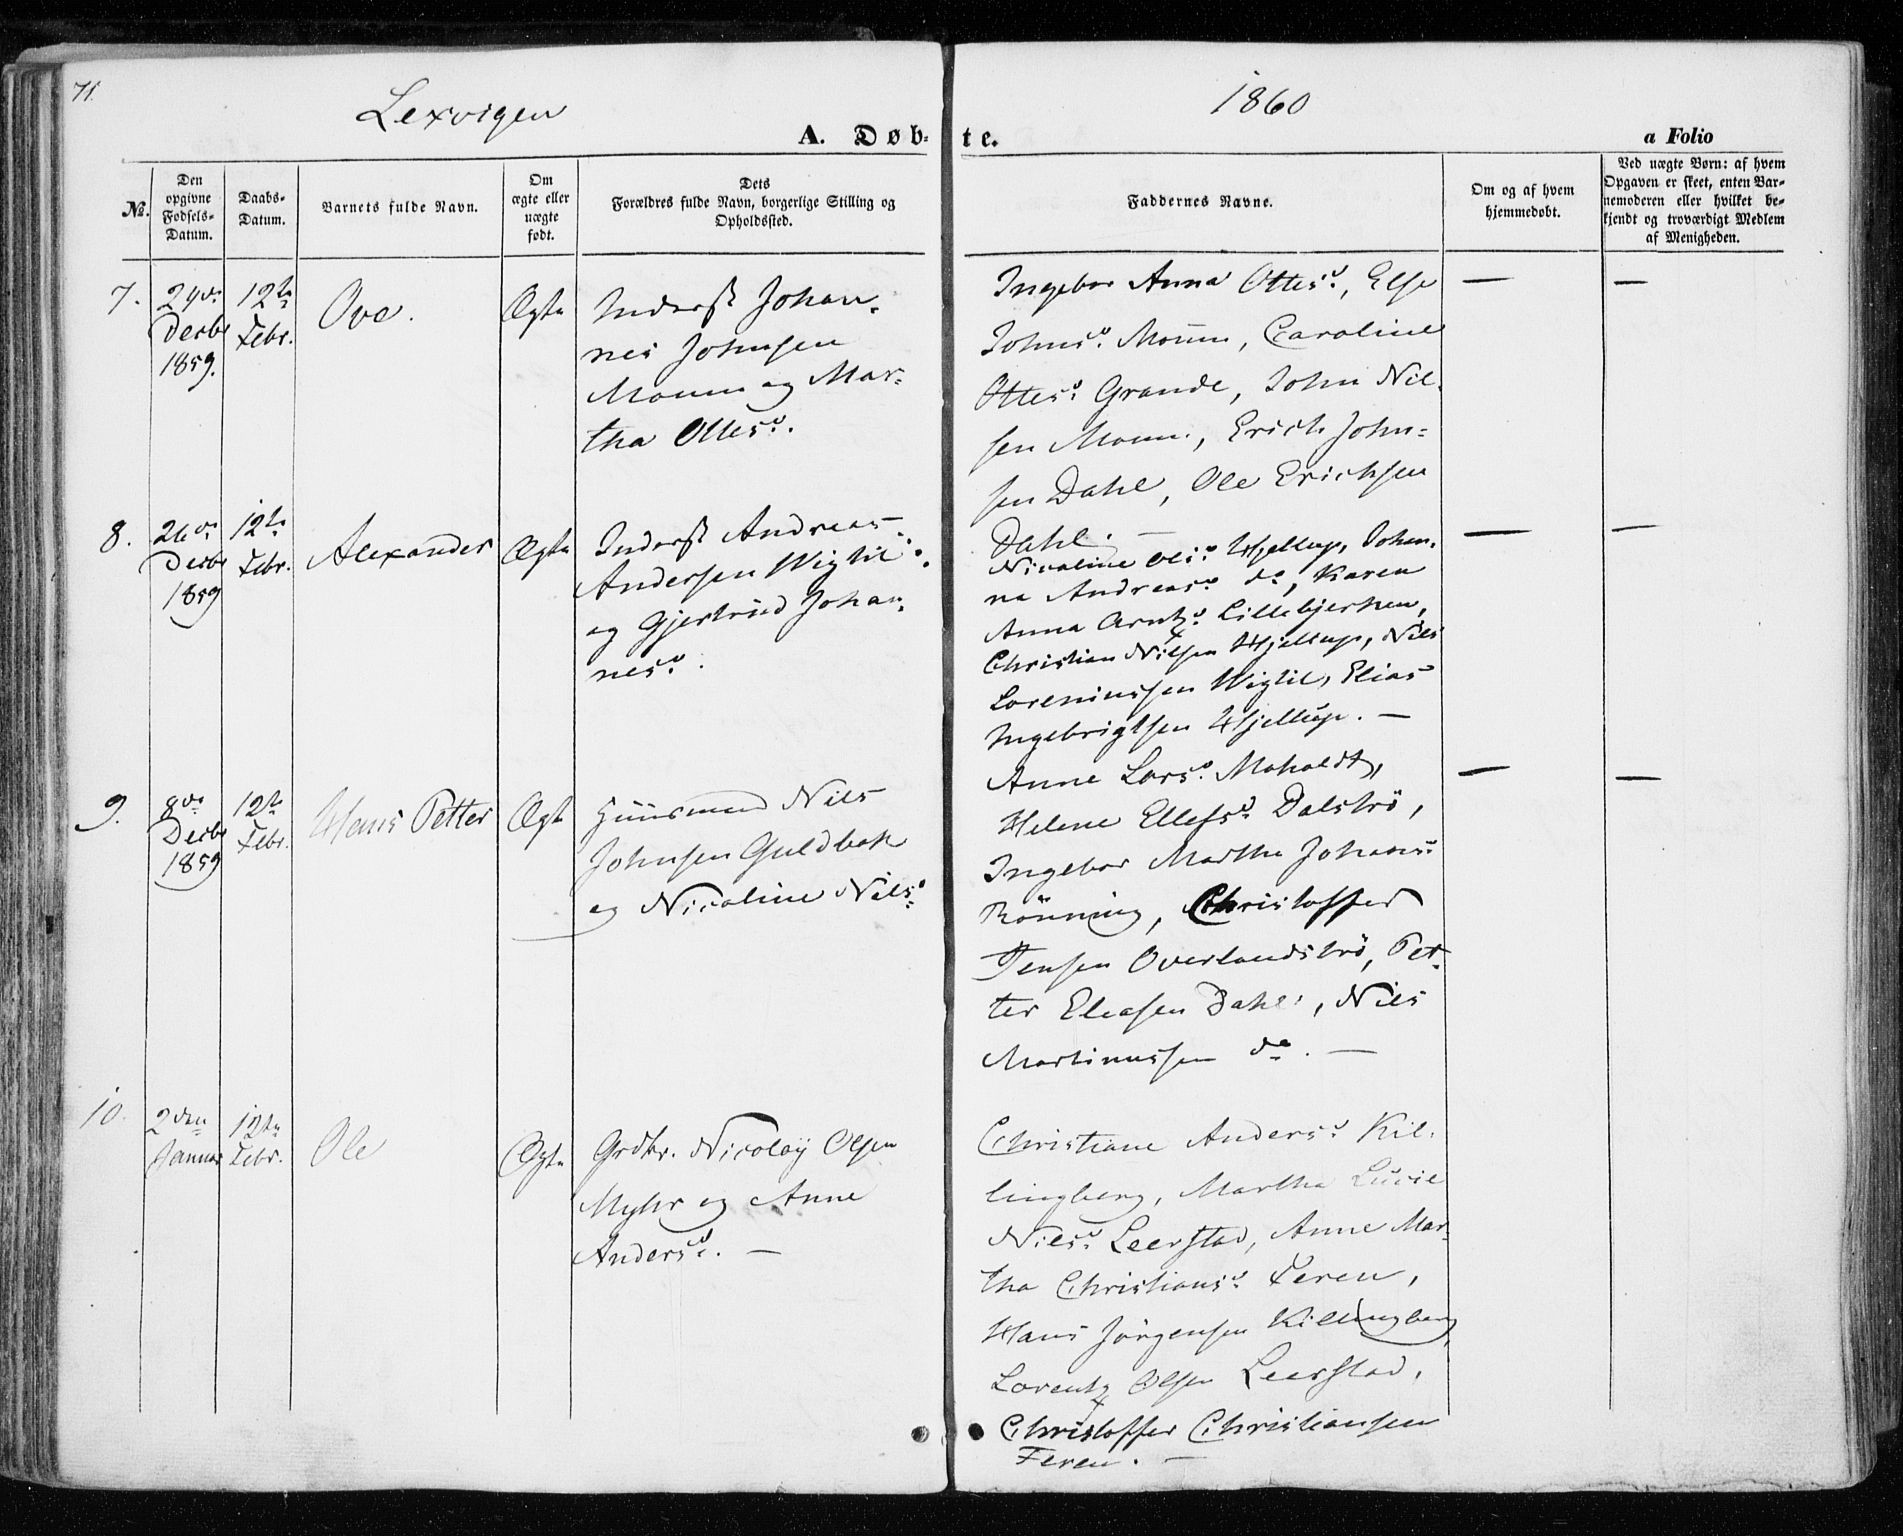 71.
Lexvigen
1860
A. Døb-
te.
a Folio
No.
Den opgivne Fødsels-Datum.
Daabs-Datum.
Barnets fulde Navn.
Om ægte eller uægte født.
Dets
Forældres fulde Navn, borgerlige Stilling og
Opholdssted.
Faddernes Navne.
Om og af hvem
hjemmedøbt.
Ved uægte Børn: af hvem
Opgaven er skeet, enten Bar-
nemoderen eller hvilket be-
kjendt og troværdigt Medlem
af Menigheden.
7.
Decbr
1859.
12te
Febr.
Ove.
Ægte
Inderst Johan-
nes Johnsen
Moum og Mar-
tha Ottesd.
Ingebor Anna Ottesd., Else
Johnsd. Moum, Caroline
Ottesd. Grande, John Nil-
sen Moum, Erich John-
sen Dahl, Ole Erichsen
Dahl. —
—
—
8.
26de
Decbr
1859
12te
Febr.
Alexander
Ægte
Inderst Andreas
Andersen Wigtil
og Gjertrud Johan-
nesd.
Nicoline Olsd. Hjellup, Johan-
na Andreasd. do, Karen
Anna Arntzd. Lillebjerken,
Christian Nilsen Hjellup, Nils
Loreninssen Wigtil, Elias
Ingebrigtsen Hjellup. —
—
—
9.
8de
Decbr
1859
12te
Febr.
Hans Petter
Ægte
Huusmand Nils
Johnsen Guldbak
og Nicoline Nilsd.
Anne Larsd. Moholdt,
Helene Ellefsd. Dalströ,
Ingebor Martha Johansd.
Rönning, Christoffer
Jensen Overlandströ, Pet-
ter Eleasen Dahl, Nils
Martinussen do. —
—
—
10.
2den
Januar
12te
Febr.
Ole
Ægte
Grdbr. Nicolaÿ Olsen
Myhr og Anne
Andersd. —
Christiane Andersd. Kil-
lingberg, Martha Lucie
Nilsd. Leerstad, Anne Mar-
tha Christiansd. Feren,
Hans Jörgensen Killingberg,
Lorentz Olsen Leerstad,
Christoffer Christiansen
Feren. —